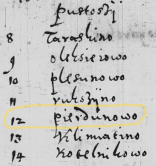 pustoszy
8 Taraskino
9 oleksierowo
10 plesunowo
11 rukszyno
12 pierdunowo
13 Kilimatino
14 Kobelnikowo